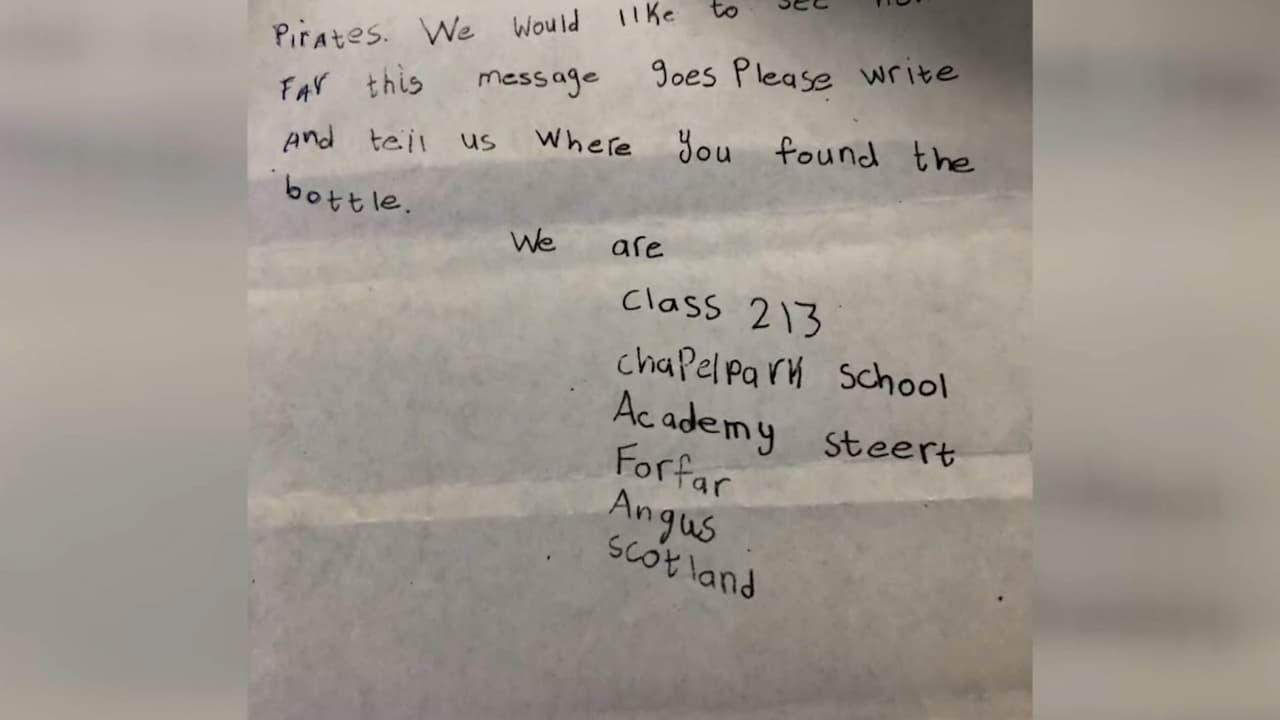 Pirates. We Would like to see
FAr this message goes Please write
And tell us Where You found the
bottle.
We are
Class 2\3
chaPelpark School
Academy steert
Forfar
Angus
Scotland